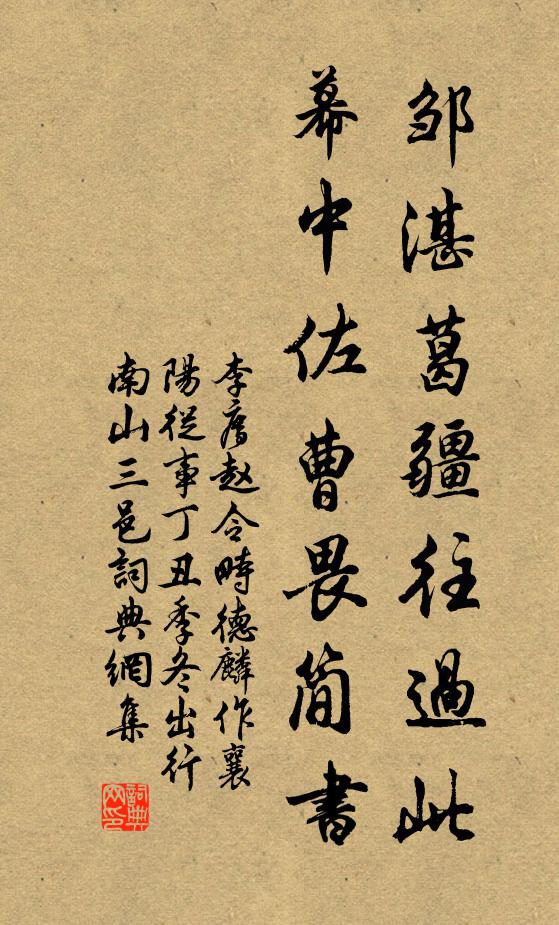 鄒湛葛疆往過此
幕中佐曹畏簡書
李廌趙令時德麟作襄
陽從事丁丑季冬出行
南山三邑詞典網集
詞典網印